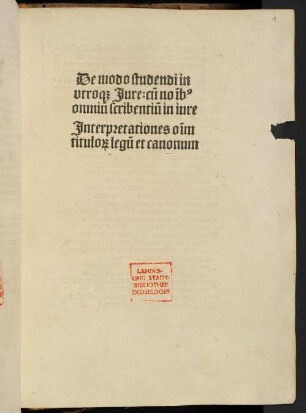 De modo studendi in
vtroqꝫ Jure: cū noībꝰ
omniū scribentiū in iure
Interpretationes oīm
tituloꝝ legū et canonum
LANDES-
UND STADT-
BIBLIOTHEK
DÜSSELDORF